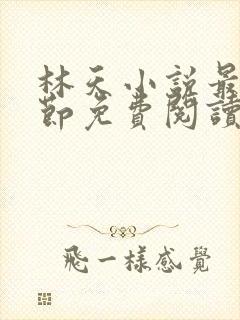 林天小説最
節免費閱讀
飛一樣感覺